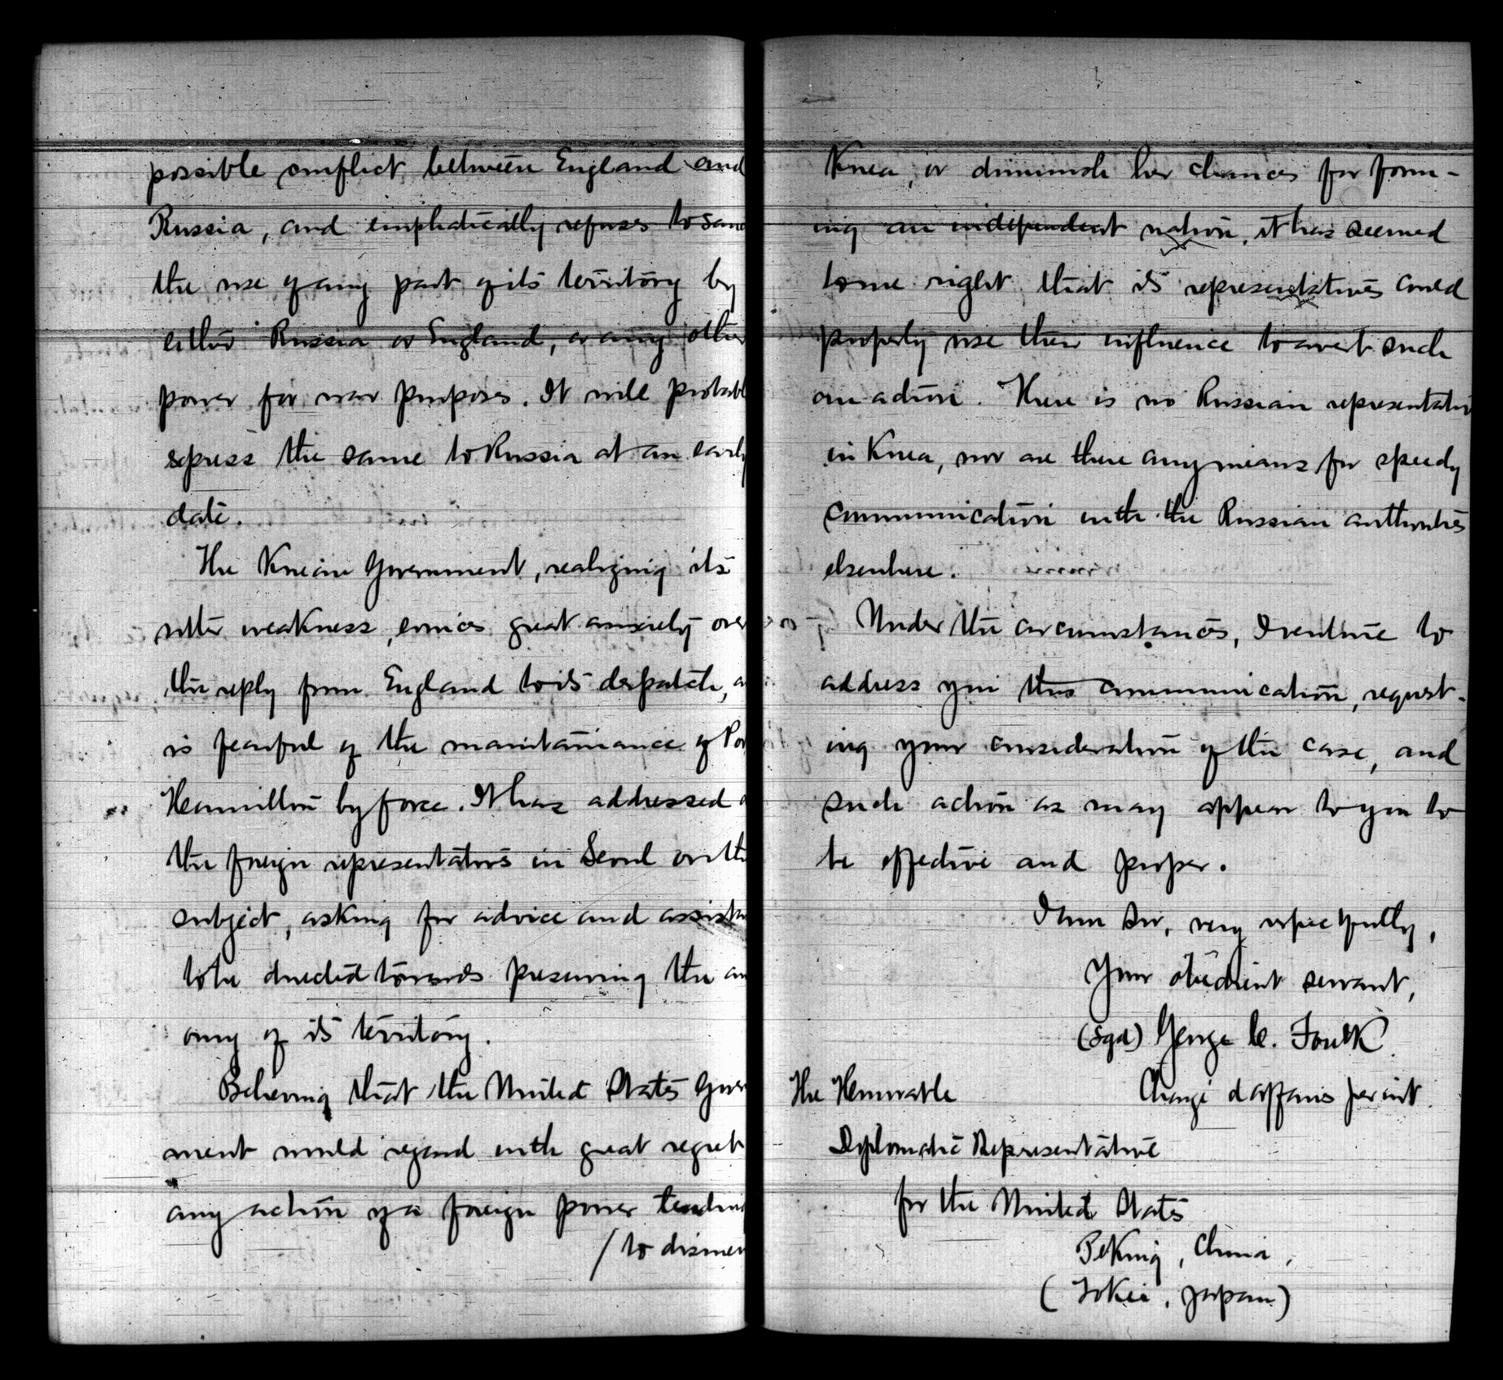 possible conflict between England and
Russia, and emphatically refuses to san
the use of any part of its territory by
either Russia or England, or any other
power for war purposes. It will probabl
express the same to Russia at an early
date.
The Korean Government, realizing its
utter weakness, evinces great anxiety over
the reply from England to its despatch, a
is fearful of the maintainance of Por
Hamilton by force. It has addressed a
the foreign representatives in Seoul on th
subject, asking for advice and assista
to be directed towards preserving the au
omy of its territory.
Believing that the United States Gover
ment would regard with great regret
any action of a foreign power tendin
/ to dismem
Korea, or diminish her chances for form-
ing an independent nation, it has seemed
to me right that its representatives could
properly use their influence to avert such
an action. There is no Russian representativ
in Korea, nor are there any means for speedy
communication with the Russian authorities
elsewhere.
Under the circumstances, I venture to
address you this communication, request-
ing your consideration of the case, and
such action as may appear to you to
be effective and proper.
I am Sir, very respectfully,
Your obedient servant,
(Sgd) George C. Foulk
Chargé d'affaires per int.
The Honorable
Diplomatic Representative
for the United States
Peking, China,
(Tokei, Japan)